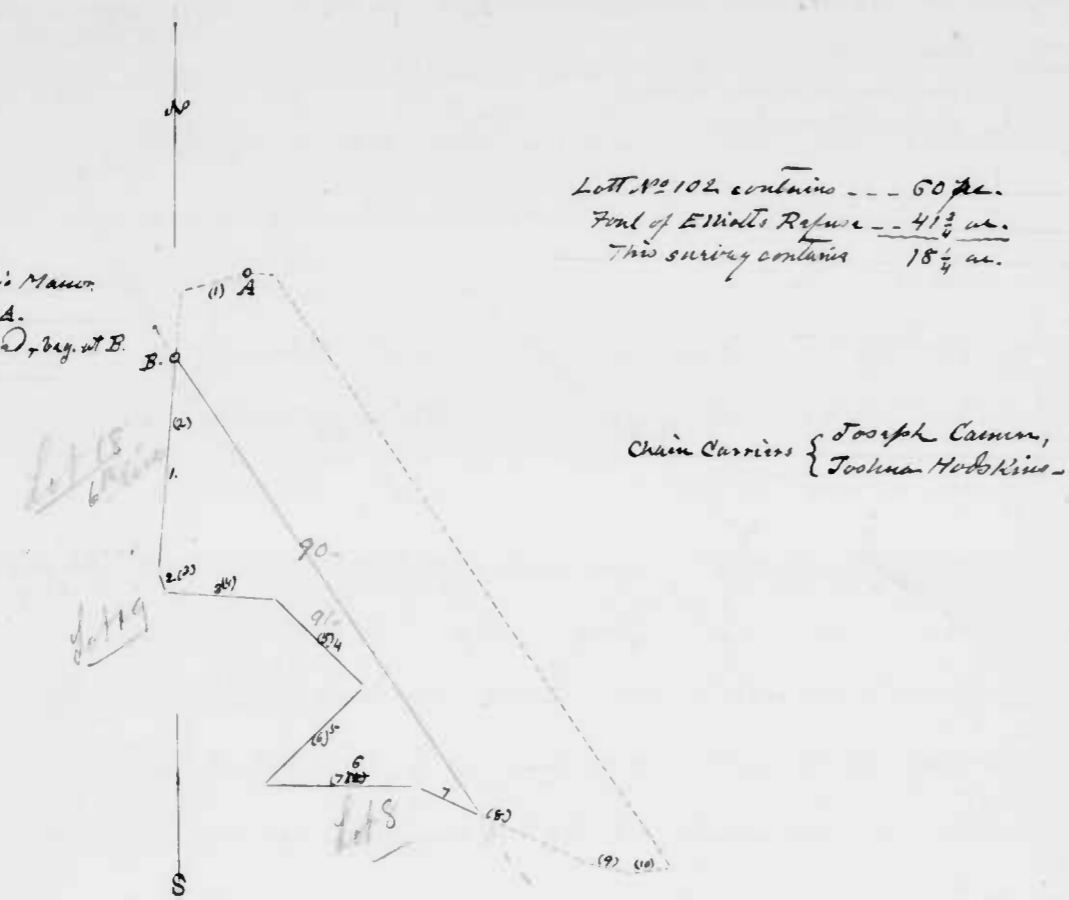 N
Lott No 102 contains --- 60 ac.
Foul of Elliotts Refuse -- 41 3/4 ac.
This survey contains 18 1/4 ac.
's Manor
A.
D, beg. at B.
(1) A
B.
(2)
1.
Lot 18
6
2(3)
3(4)
Lot 19
90
91
(5)4
(6)5
6
(7)
7
(8)
Lot 8
(9) (10)
S
Chain Carriers { Joseph
Joshua Hodskins